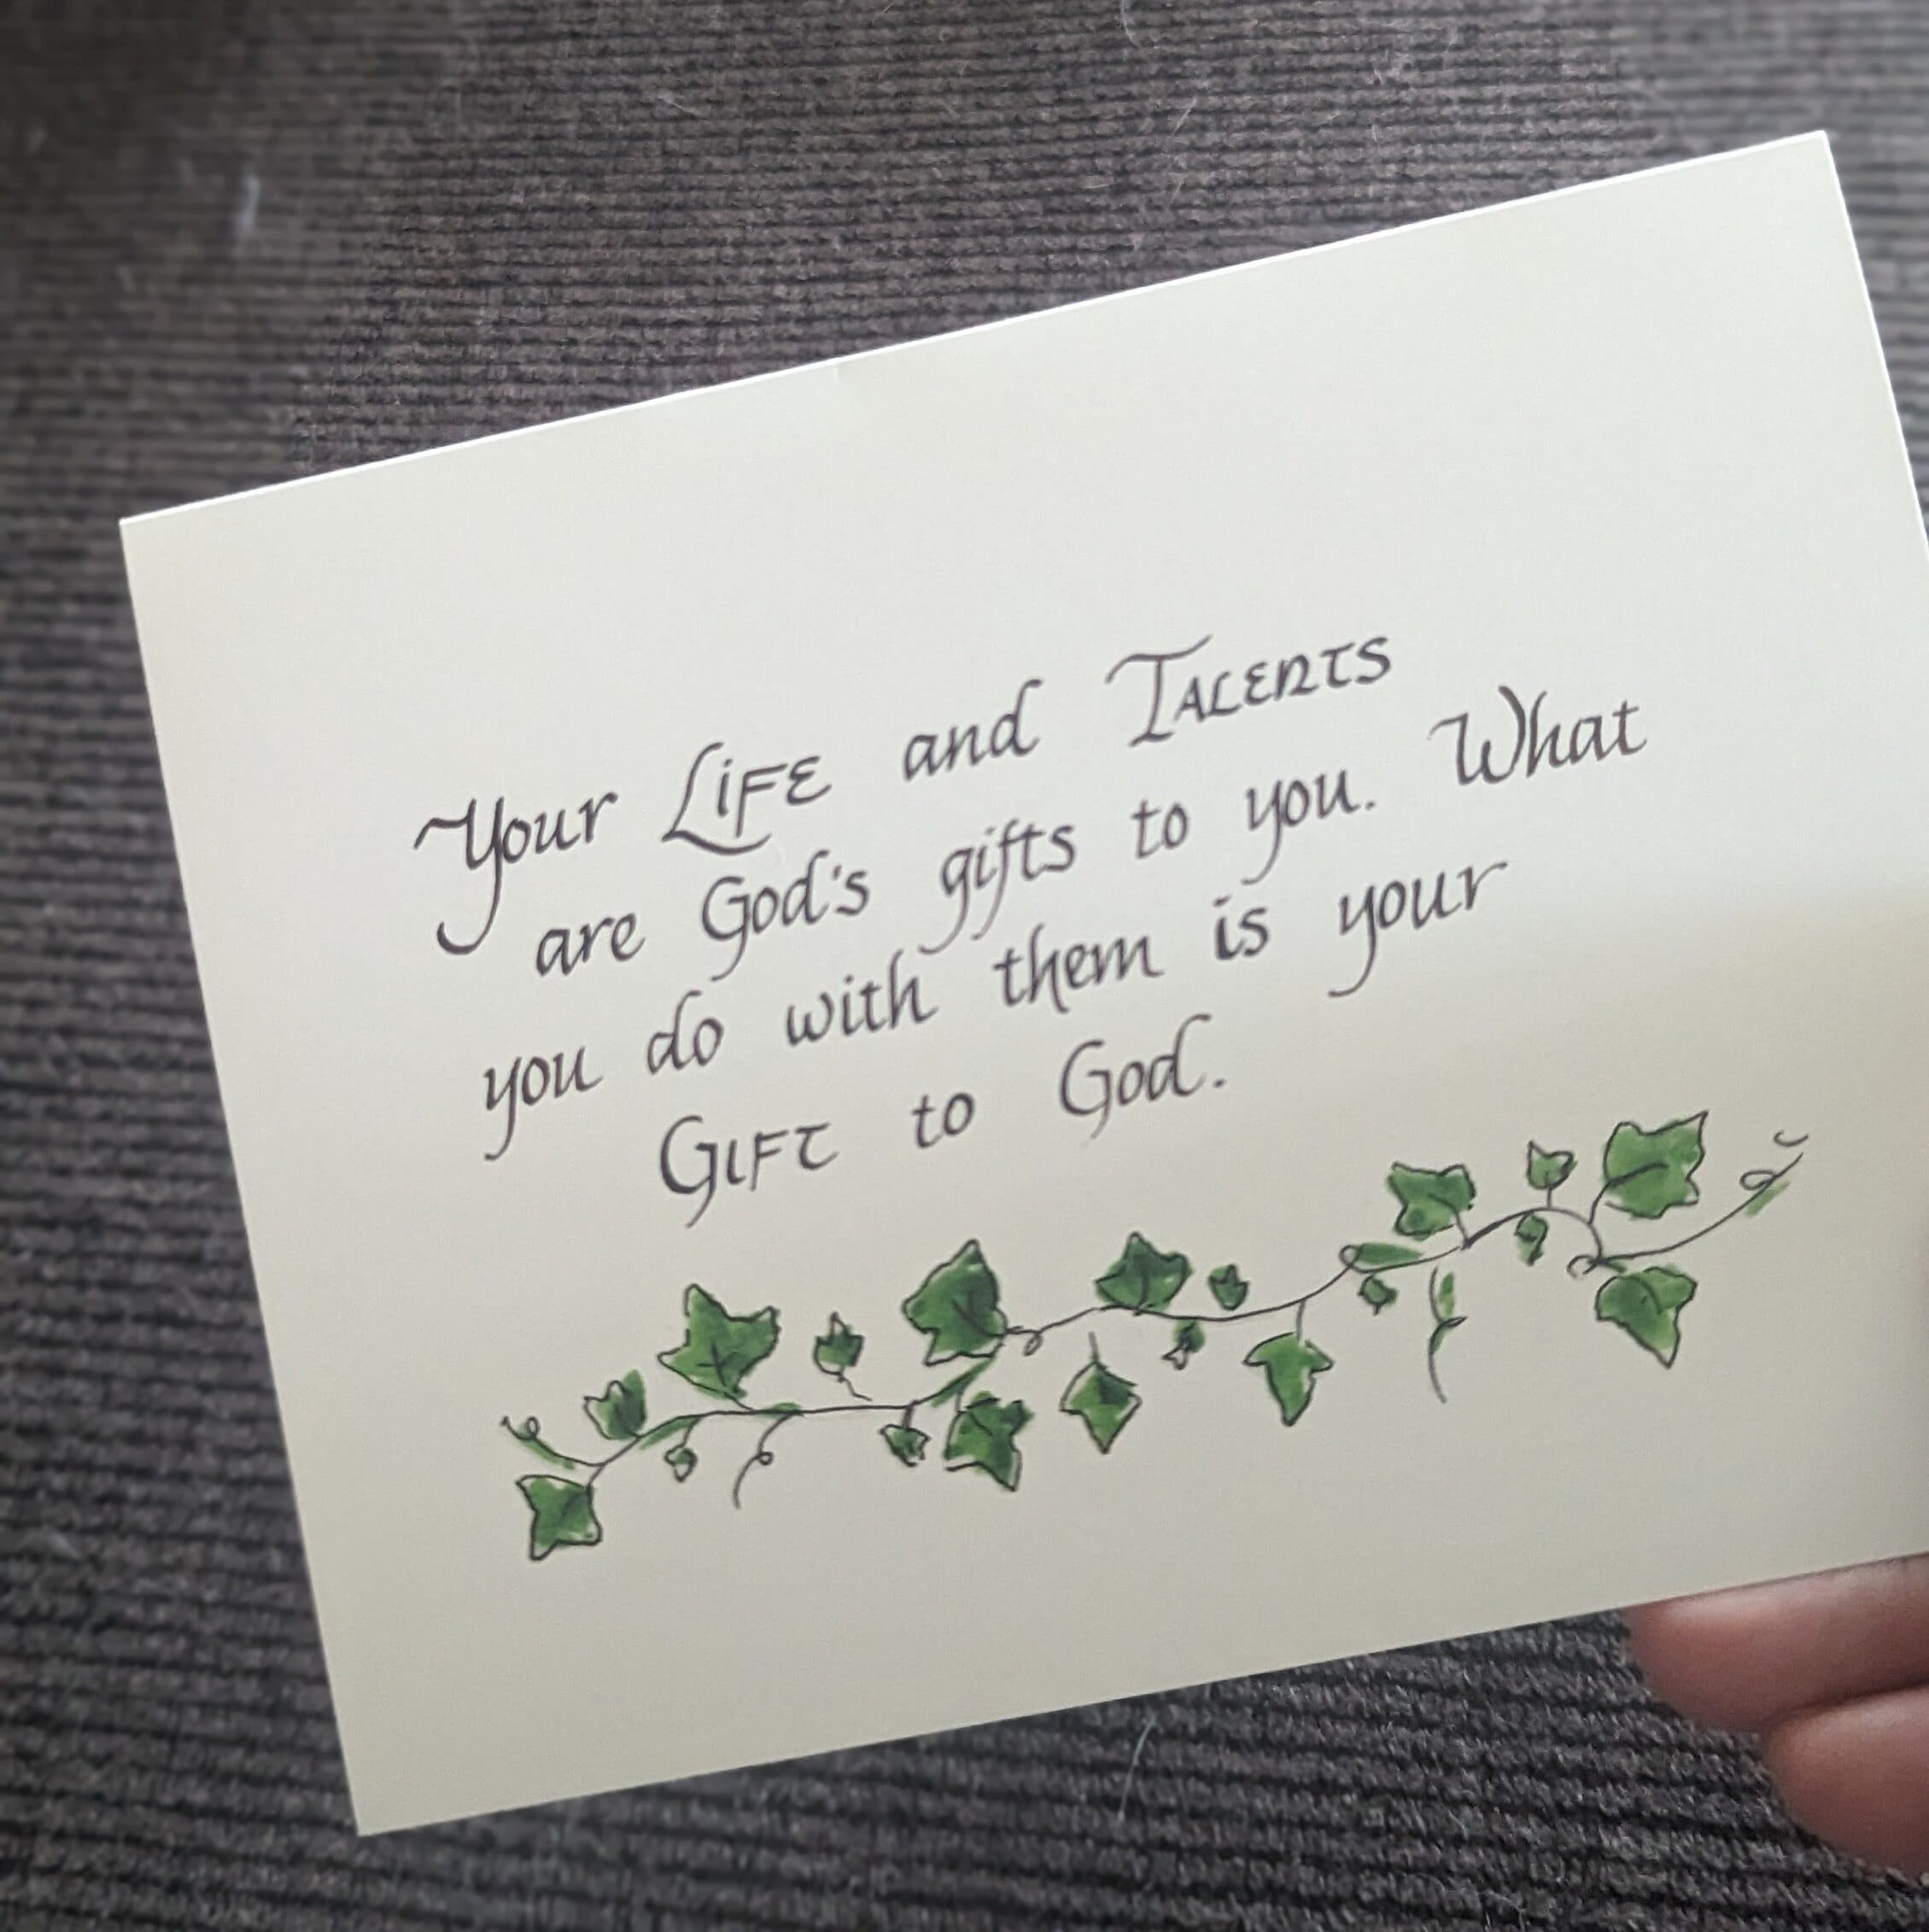 Your LiFE and TALENTS
are God's gifts to you. What
you do with them is your
GIFT to God.